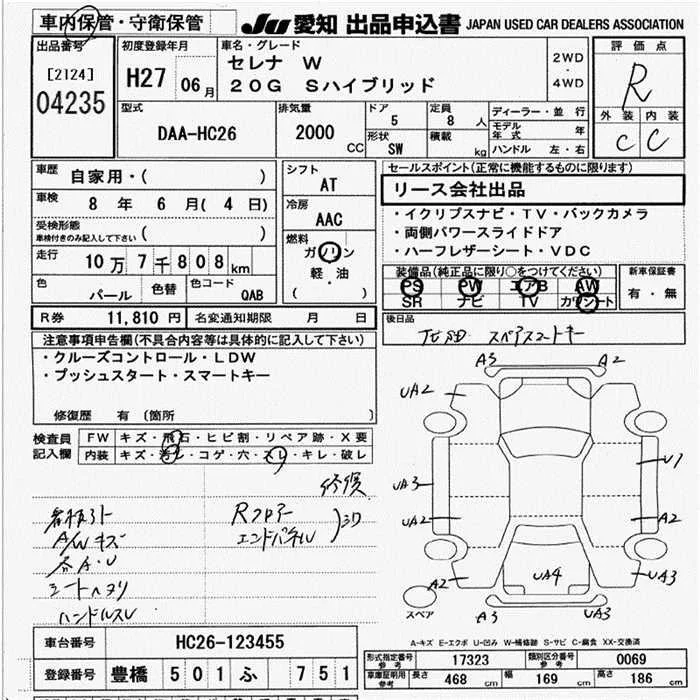 車内保管・守衛保管
JU 愛知 出品申込書 JAPAN USED CAR DEALERS ASSOCIATION
出品番号
[2124]
04235
初度登録年月
H27 06月
車名・グレード
セレナ W
20G Sハイブリッド
2WD
・
4WD
評価点
R
外装 内装
C C
型式
DAA-HC26
排気量
2000 CC
ドア
5
定員
8 人
形状
SW
積載
kg
ディーラー・並行
モデル年式 年
ハンドル 左・右
車歴
自家用・( )
車検
8 年 6 月( 4 日)
受検形態
車検付きのみ記入して下さい ( )
走行
10万 7千 808 km
色
パール
色替
色コード
QAB
シフト
AT
冷房
AAC
燃料
ガソリン
軽・油
( )
セールスポイント(正常に機能するものに限り)
リース会社出品
・イクリプスナビ・TV・バックカメラ
・両側パワースライドドア
・ハーフレザーシート・VDC
装備品(純正品に限り○をつけてください)
PS PW エアB AW
SR ナビ TV カワシート
新車保証書
有・無
R券 11,810 円 名変通知期限 月 日
後日品
スペアスマートキー
注意事項申告欄(不具合内容等は具体的に記入して下さい)
・クルーズコントロール・LDW
・プッシュスタート・スマートキー
修復歴 有 〔箇所 〕
検査員記入欄
FW キズ・飛石・ヒビ割・リペア跡・X要
内装 キズ・汚レ・コゲ・穴・スレ・キレ・破レ
修復
看板跡
A/Wキズ
各A・U
シートヘタリ
ハンドルスレ
Rフロアー
エンドパネル
A3 A2
UA2
U1
UA3
UA2 A2
A2 UA4 UA3
A3 UA3
スペア
A-キズ E-エクボ U-凹み W-補修跡 S-サビ C-腐食 XX-交換済
車台番号 HC26-123455
登録番号 豊橋 501 ふ 751
形式指定番号 参考 17323
類別区分番号 参考 0069
車庫証明用 参考
長さ 468 cm 幅 169 cm 高さ 186 cm